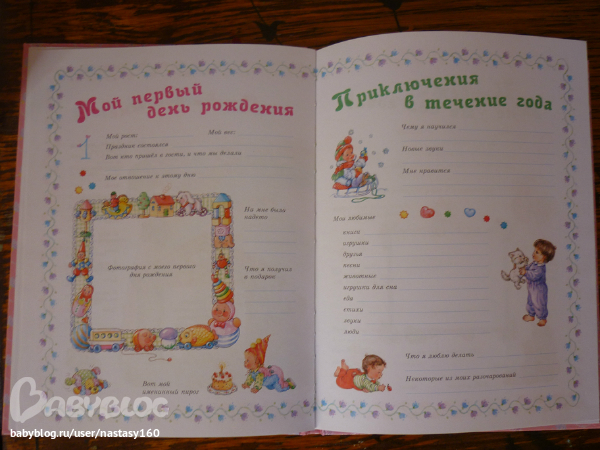 Мой первый
день рождения
Мой рост: Мой вес:
Праздник состоялся
Вот кто пришёл в гости, и что мы делали
Мое отношение к этому дню
На мне было
надето
Фотография с моего первого
дня рождения
Что я получил
в подарок
Вот мой
именинный пирог
Приключения
в течение года
Чему я научился
Новые звуки
Мне нравится
Мои любимые
книги
игрушки
друзья
песни
животные
игрушки для сна
еда
стихи
звуки
люди
Что я люблю делать
Некоторые из моих разочарований
BABYBLOG
babyblog.ru/user/nastasy160